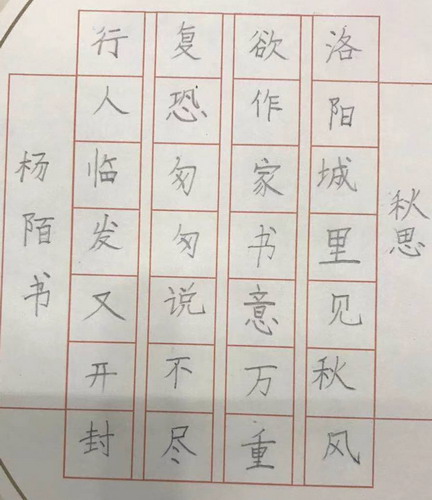 秋思
洛阳城里见秋风
欲作家书意万重
复恐匆匆说不尽
行人临发又开封
杨陌书